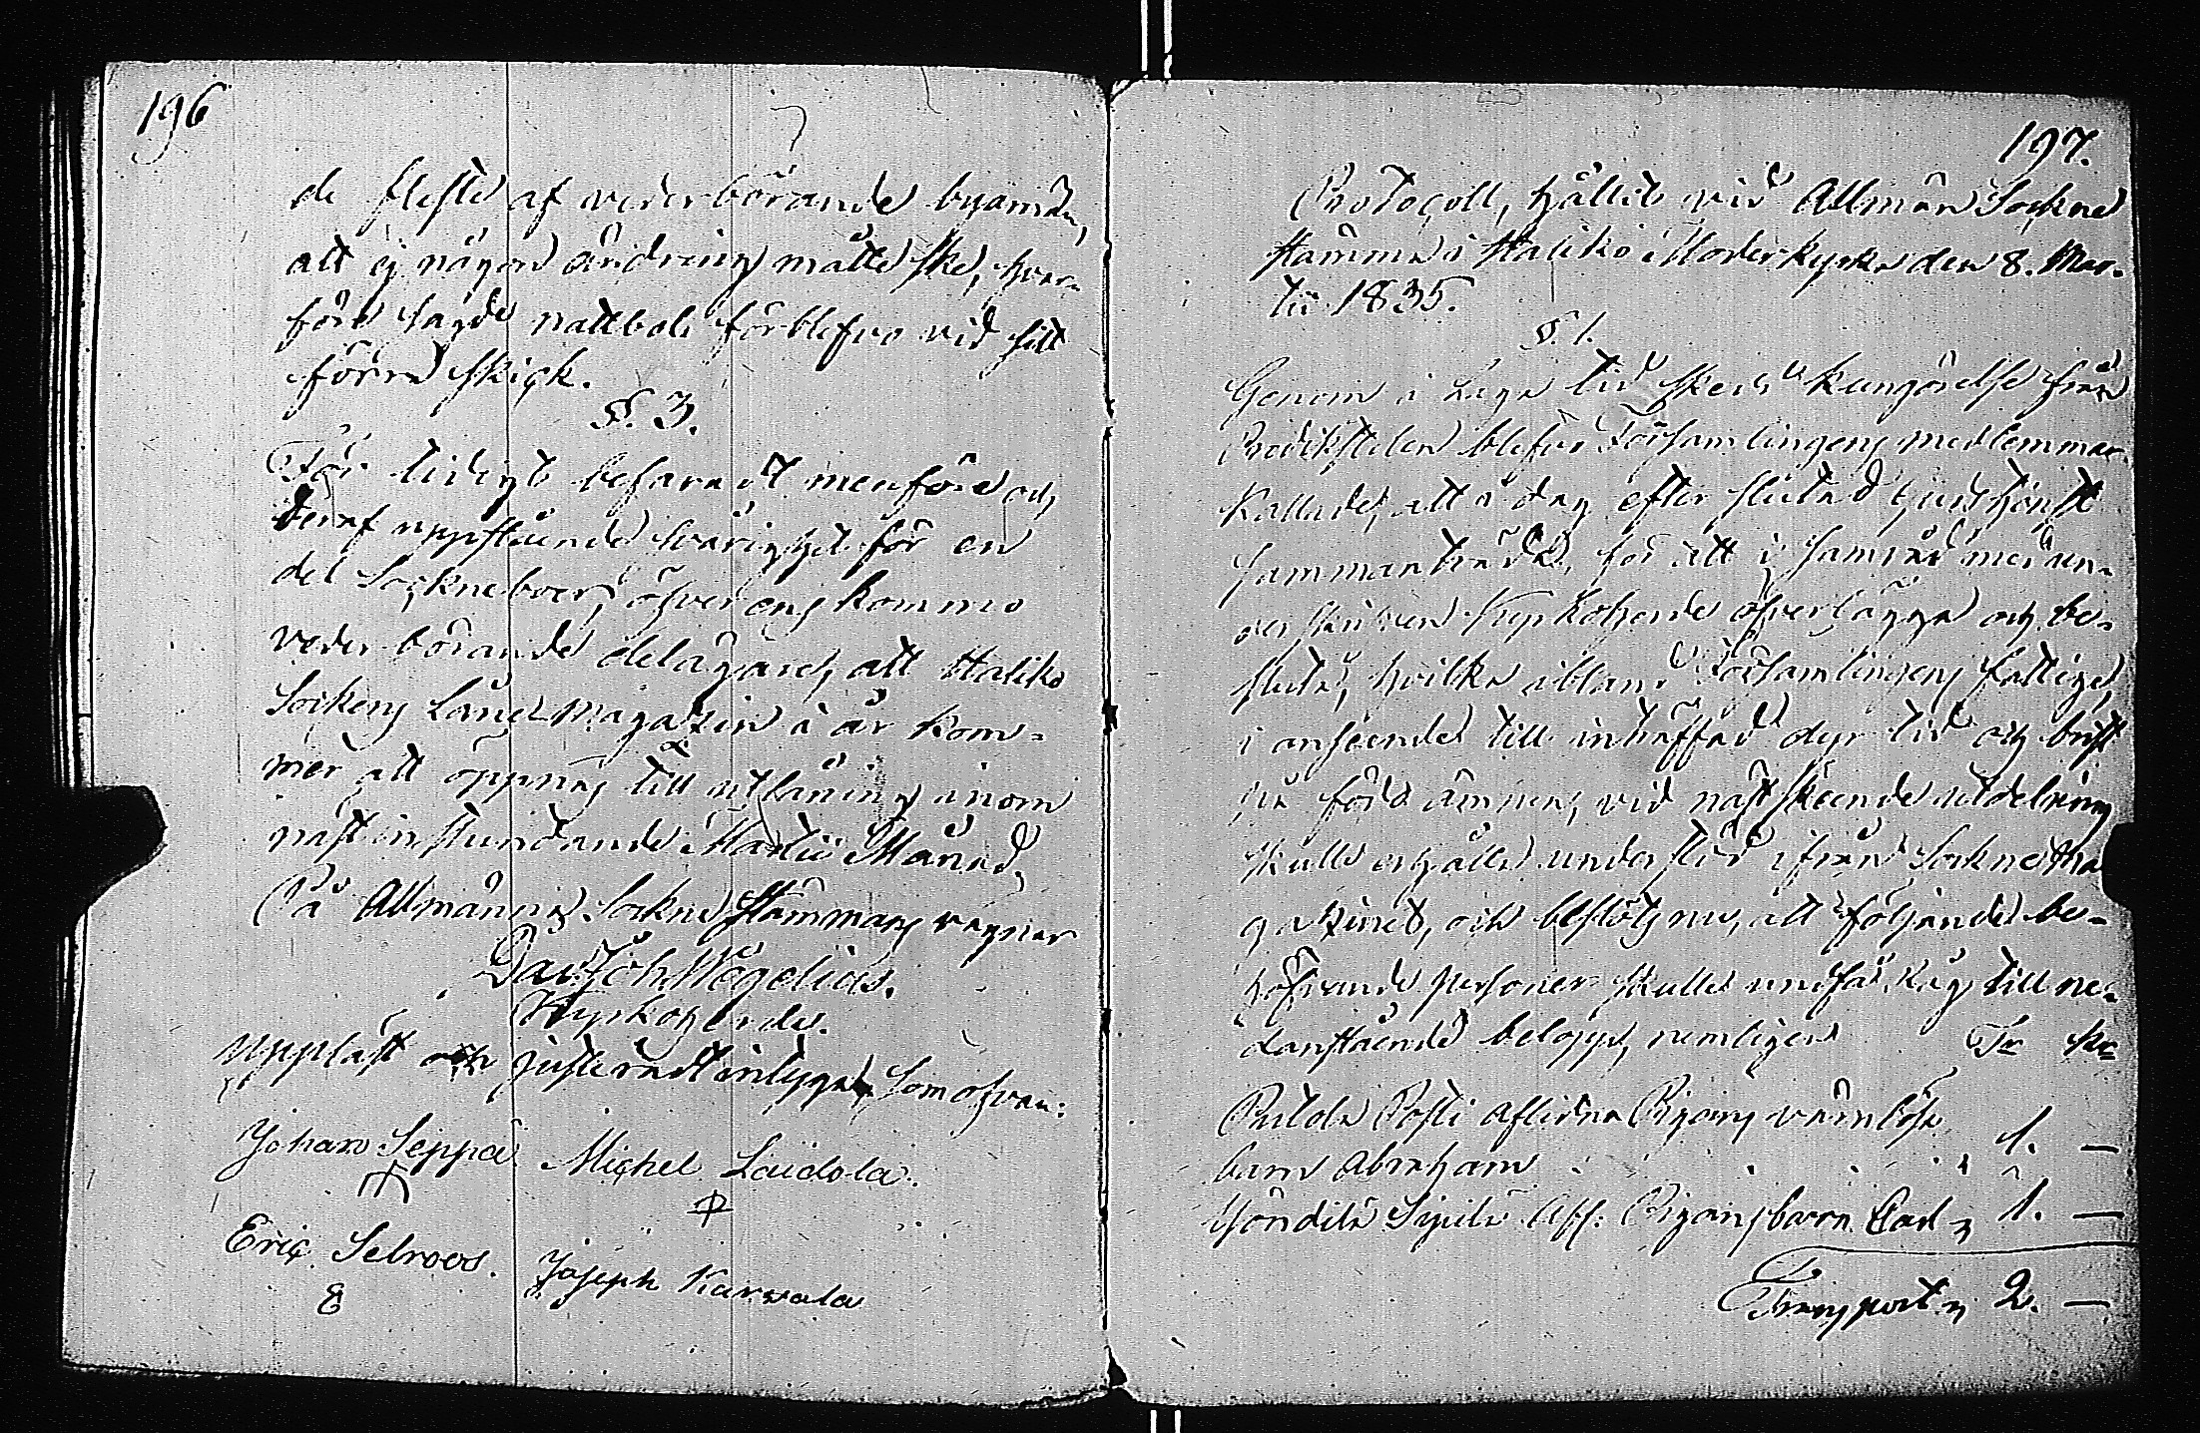 196
de fleste af vederbörande byamän,
att ej någon ändring måtte ske, hvar-
före sagde nattbole förblefvo vid sitt
förra skick.
§. 3.
För tidigt befaradt menföre och
deraf uppstående svårighet för en
del Sockneboer, öfverenskommo
vederbörande delägare, att Haliko
Sockens Lånemagazin i år kom-
mer att öppnas till utlåning inom
nästinstundande Martii Månad,
På Allmänna Sockne Stämmans vägnar
Dav. Joh. Wegelius.
Kyrkoherde.
Uppläst och justeradt intygas Som ofvan:
Johan Seppä Michel Laidola.
Eric Selroos. Joseph Karvala
E
197.
Protocoll, hållit vid Allmän Sockne
Stämma i Haliko Moderkyrka den 8. Mar-
tii 1835.
§. 1.
Genom i Laga tid skedd kungörelse från
Predikstolen blefvo Församlingens medlemmar
kallade, att i dag efter slutad Gudstjenst
sammanträda, för att i samråd med un-
derskrifven Kyrkoherde öfverlägga och be-
sluta, hvilka ibland Församlingens fattige,
i anseende till inträffad dyr tid och brist
på födoämnen, vid nästskeende utdelning
skulle erhålla understöd ifrån Sockne Ma
gazinet, och beslöts nu, att följande be-
höfvande personer skulle undfå Råg till ne-
danstående belopp, nemligen Tr Kr
Pulola Posti aflidna Pigans värnlösa
barn Abraham 1. —
Yöndilä Sipilä Afl: Pigans barn Carl 1. —
Transport 2. —